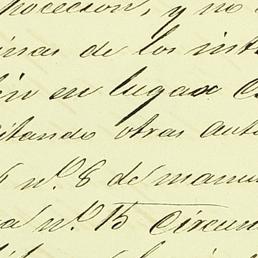 procecion, y no
inas de los inte
bien en lugar C
sitando otras aut
s nº. 8 de manu
va nº. 15 Circun